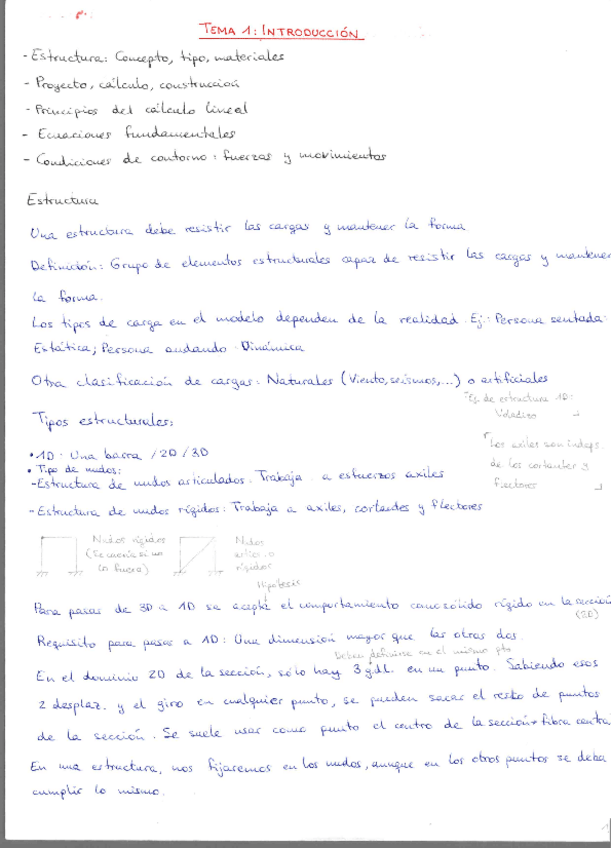 TEMA 1: INTRODUCCIÓN
- Estructura: Concepto, tipo, materiales
- Proyecto, cálculo, construcción
- Principios del cálculo lineal
- Ecuaciones fundamentales
- Condiciones de contorno: fuerzas y movimientos
Estructura
Una estructura debe resistir las cargas y mantener la forma
Definición: Grupo de elementos estructurales capaz de resistir las cargas y mantener
la forma.
Los tipos de carga en el modelo dependen de la realidad. Ej.: Persona sentada:
Estática; Persona andando: Dinámica
Otra clasificación de cargas: Naturales (Viento, seísmos,...) o artificiales
Ej. de estructura 1D:
Voladizo
Tipos estructurales:
• 1D: Una barra / 2D / 3D
Los axiles son indeps.
de los cortantes y
flectores
• Tipo de nudos:
- Estructura de nudos articulados. Trabaja a esfuerzos axiles
- Estructura de nudos rígidos: Trabaja a axiles, cortantes y flectores
Nudos rígidos
(Se caería si no
lo fuera)
Nudos
artic. o
rígidos
Hipótesis
Para pasar de 3D a 1D se acepta el comportamiento como sólido rígido en la sección
(2D)
Requisito para pasar a 1D: Una dimensión mayor que las otras dos.
Deben definirse en el mismo pto
En el dominio 2D de la sección, sólo hay 3 g.d.l. en un punto. Sabiendo esos
2 desplaz. y el giro en cualquier punto, se pueden sacar el resto de puntos
de la sección. Se suele usar como punto el centro de la sección → fibra central
En una estructura, nos fijaremos en los nudos, aunque en los otros puntos se deba
cumplir lo mismo.